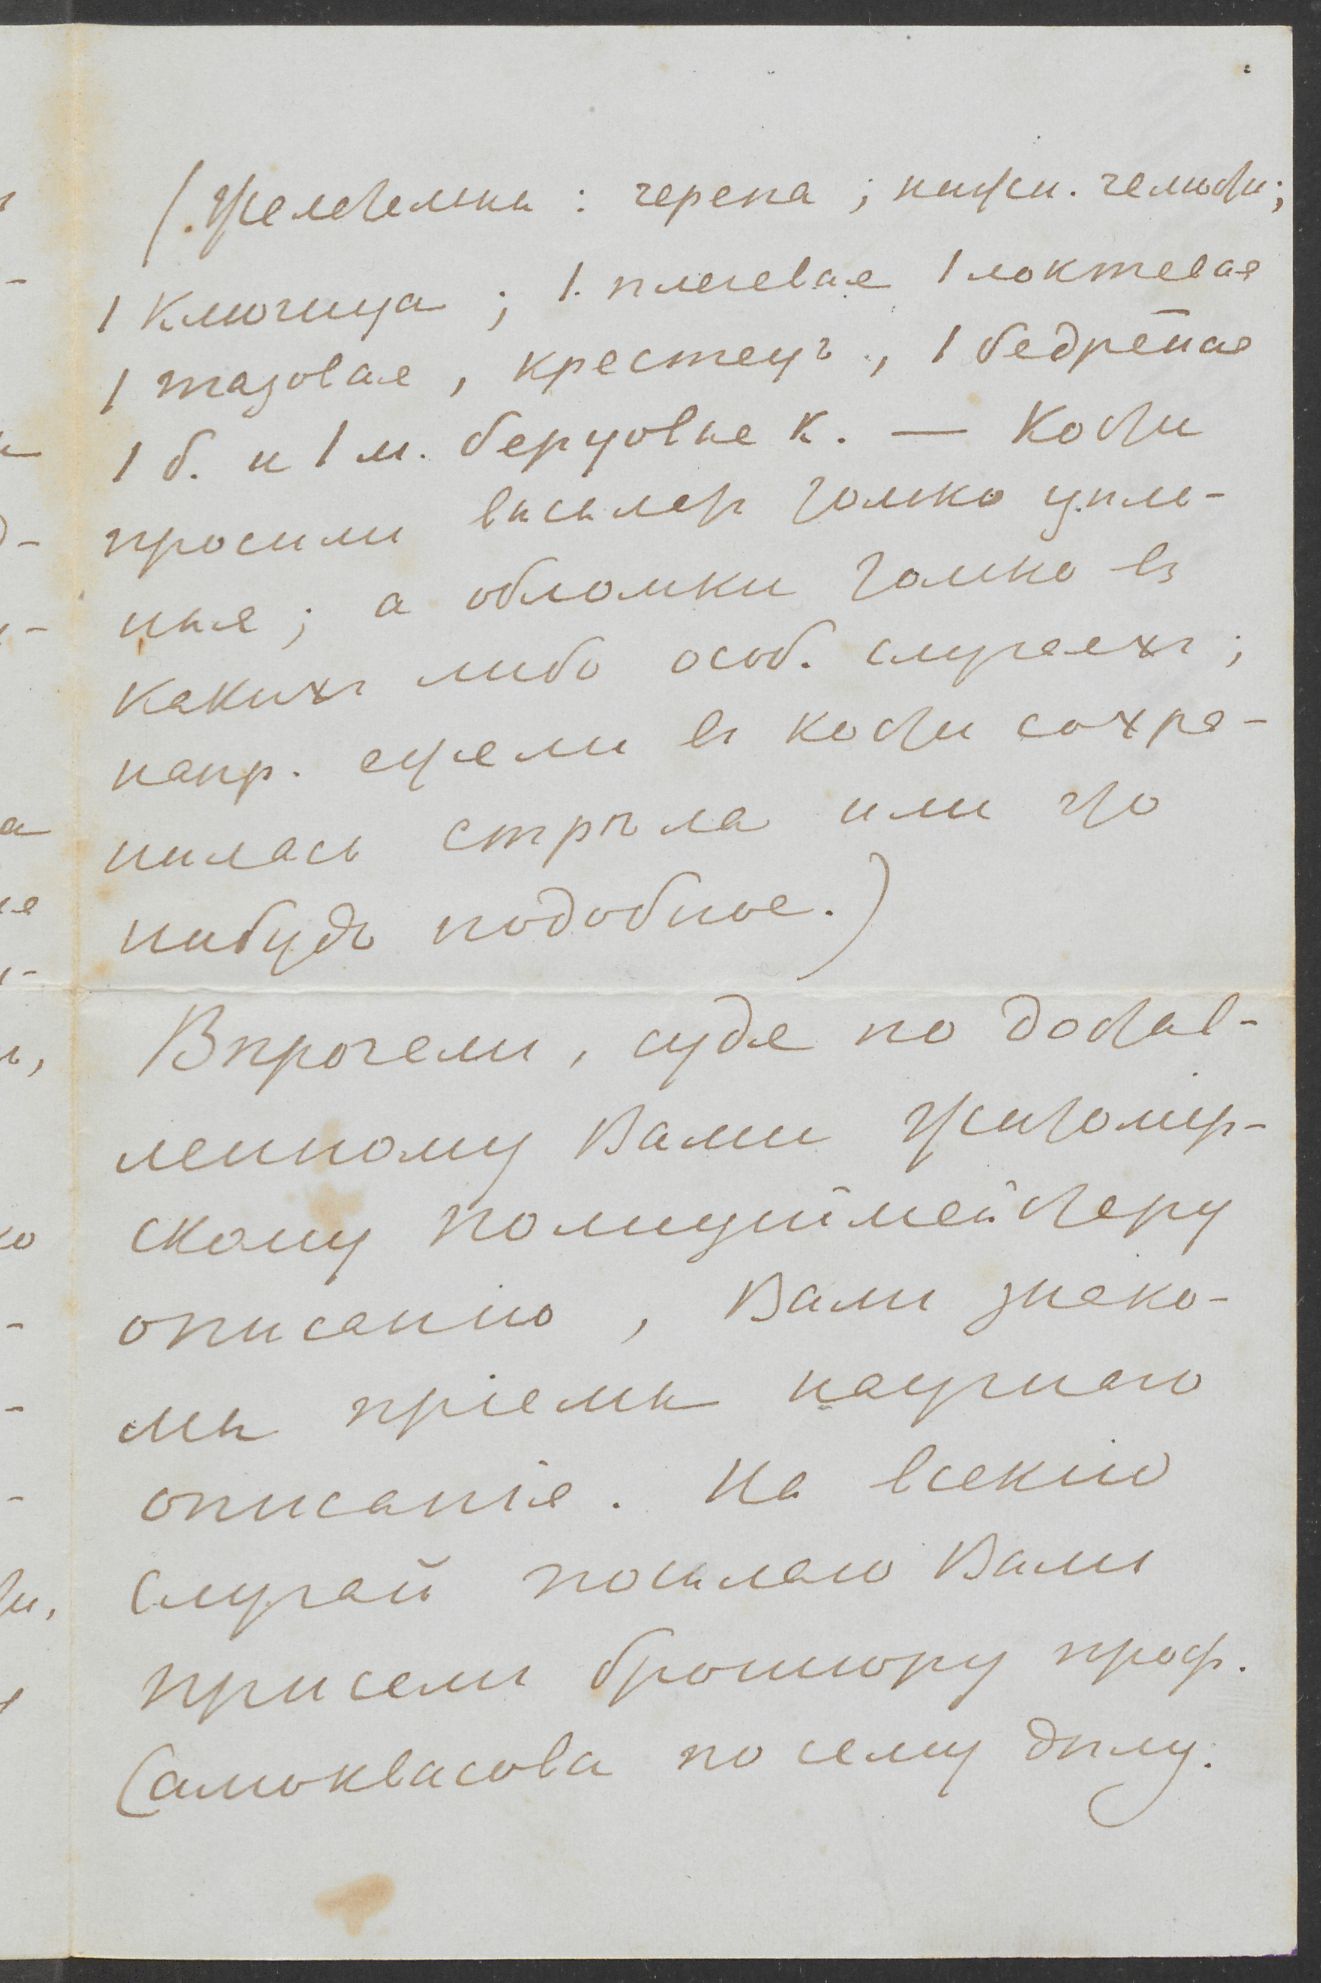 (Желательны: черепа; нижн. челюсти;
1 ключица; 1. плечевая 1 локтевая
1 тазовая, крестецъ, 1 бедреная
1 б. и 1 м. берцовые к. — Кости
просили высылать только цѣль-
ныя; а обломки только въ
какихъ либо особ. случаяхъ;
напр. ежели въ кости сохра-
нилась стрѣла или что
нибудь подобное.)
Впрочемъ, судя по достав-
ленному Вами Житомір-
скому полиціймейстеру
описанію, Вамъ знако-
мы пріемы научнаго
описанія. На всякій
случай посылаю Вамъ
при семъ брошюру проф.
Самоквасова по сему дѣлу.